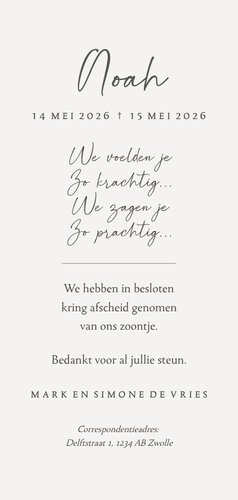 Noah
14 MEI 2026 † 15 MEI 2026
We voelden je
Zo krachtig...
We zagen je
Zo prachtig...
We hebben in besloten
kring afscheid genomen
van ons zoontje.
Bedankt voor al jullie steun.
MARK EN SIMONE DE VRIES
Correspondentieadres:
Delftstraat 1, 1234 AB Zwolle